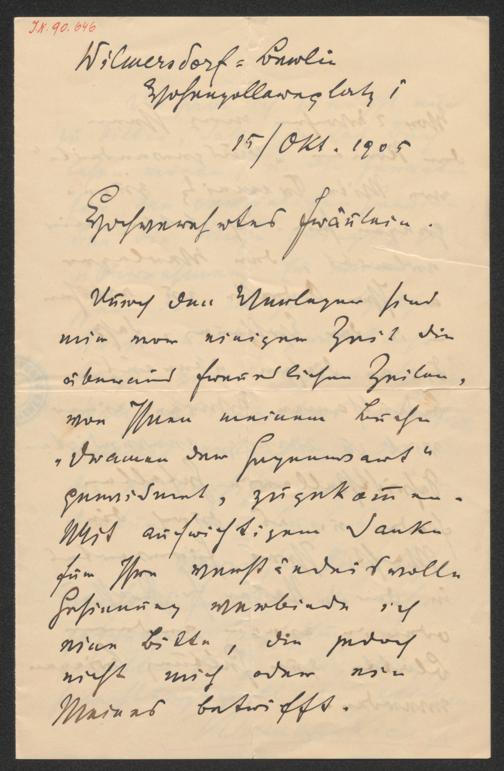 J.N. 90.646
Wilmersdorf-Berlin
Hohenzollernplatz 1
15/Okt. 1905
Hochverehrtes Fräulein.
Durch den Verleger sind
mir vor einigen Zeit die
überaus freundlichen Zeilen,
von Ihnen meinem Buche
„Dramen der Gegenwart"
gewidmet, zugekom̅en.
Mit aufrichtigem Danke
für Ihre verständnisvolle
Gesinnung verbinde ich
eine Bitte, die jedoch
nicht mich oder ein
Meines betrifft.